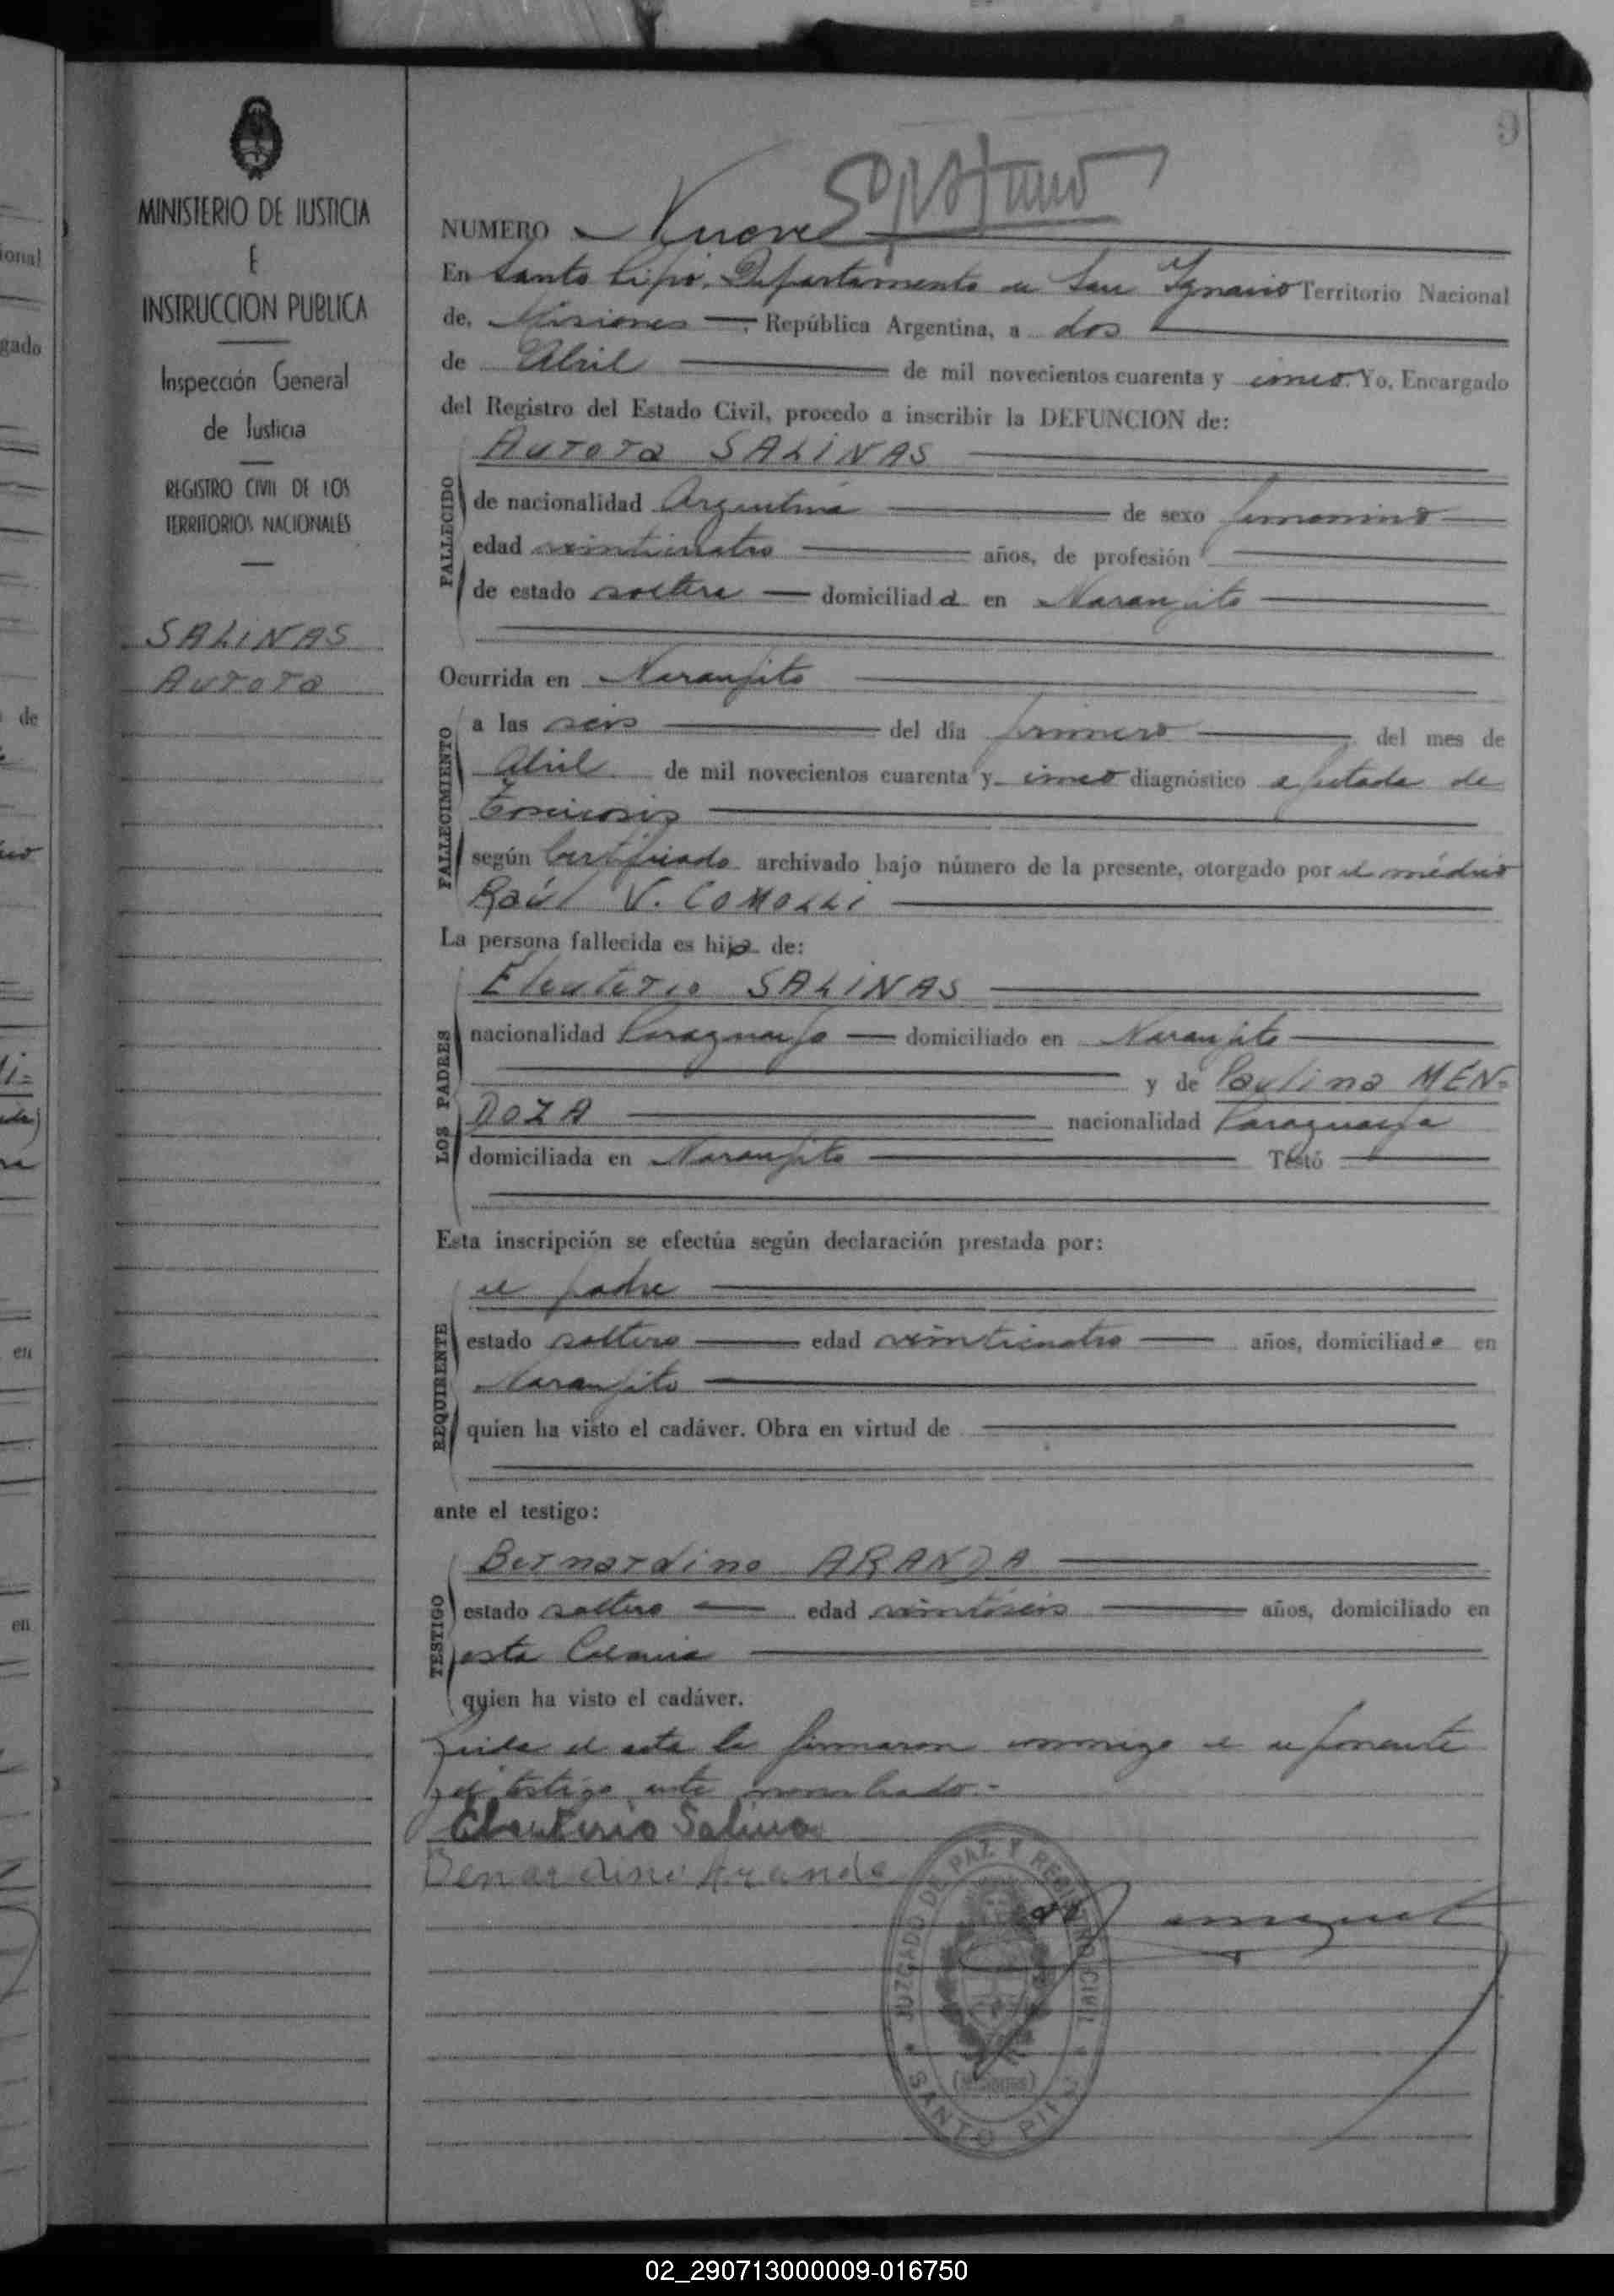 9
MINISTERIO DE JUSTICIA
E
INSTRUCCION PUBLICA
Inspección General
de Justicia
REGISTRO CIVIL DE LOS
TERRITORIOS NACIONALES
SALINAS
Aurora
NUMERO Nueve
En Santo Pipó, Departamento de San Ignacio Territorio Nacional
de, Misiones República Argentina, a dos
de Abril de mil novecientos cuarenta y cinco. Yo, Encargado
del Registro del Estado Civil, procedo a inscribir la DEFUNCION de:
Aurora SALINAS
FALLECIDO
de nacionalidad Argentina de sexo femenino
edad veinticuatro años, de profesión
de estado soltera domiciliada en Naranjito
Ocurrida en Naranjito
FALLECIMIENTO
a las seis del día primero del mes de
Abril de mil novecientos cuarenta y cinco diagnóstico afectada de
según Certificado archivado bajo número de la presente, otorgado por el médico
Raúl V. COMOLLI
La persona fallecida es hija de:
Eleuterio SALINAS
LOS PADRES
nacionalidad Paraguayo domiciliado en Naranjito
y de Paulina MEN=
DOZA nacionalidad Paraguaya
domiciliada en Naranjito Testó
Esta inscripción se efectúa según declaración prestada por:
el padre
REQUIRENTE
estado soltero edad veinticuatro años, domiciliado en
Naranjito
quien ha visto el cadáver. Obra en virtud de
ante el testigo:
Bernardino ARANDA
TESTIGO
estado soltero edad veintiseis años, domiciliado en
esta Colonia
quien ha visto el cadáver.
Leida el acta la firmaron conmigo el exponente
y el testigo ante nombrado.-
Eleuterio Salina
Benardino Aranda
JUZGADO DE PAZ Y REGISTRO CIVIL
(MISIONES)
SANTO PIPÓ
02_290713000009-016750